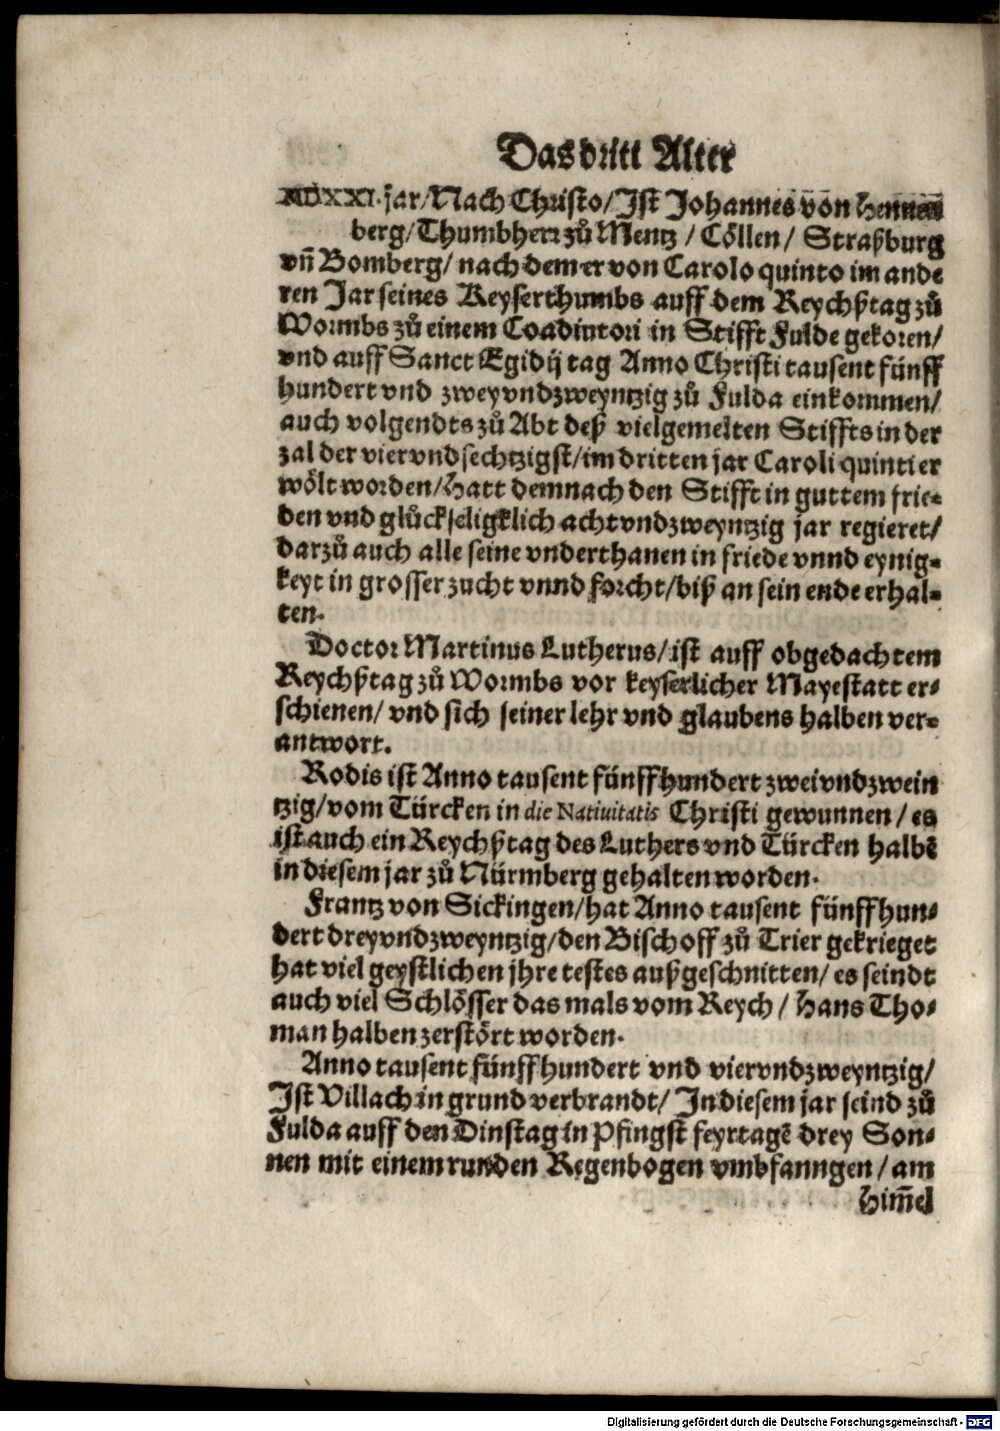 Das dritt Alter
MDXXI. jar/Nach Christo/Ist Johannes von Hennen
berg/Thumbherr zů Mentz / Cöllen / Straßburg
vn̄ Bomberg/ nach dem er von Carolo quinto im ande
ren Jar seines Keyserthumbs auff dem Reychßtag zů
Wormbs zů einem Coadiutori in Stifft Fulde gekoren/
vnd auff Sanct Egidij tag Anno Christi tausent fünff
hundert vnd zwey vndzweyntzig zů Fulda einkommen/
auch volgendts zů Abt deß vielgemelten Stiffts in der
zal der viervndsechtzigst/im dritten jar Caroli quinti er
wölt worden/Hatt demnach den Stifft in guttem frie-
den vnd glückseligklich achtvndzweyntzig jar regieret/
darzů auch alle seine vnderthanen in friede vnnd eynig-
keyt in grosser zucht vnnd forcht/biß an sein ende erhal-
ten.
Doctor Martinus Lutherus/ist auff obgedachtem
Reychßtag zů Wormbs vor keyserlicher Mayestatt er-
schienen/ vnd sich seiner lehr vnd glaubens halben ver-
antwort.
Rodis ist Anno tausent fünffhundert zweivndzwein
tzig/vom Türcken in die Natiuitatis Christi gewunnen/es
ist auch ein Reychßtag des Luthers vnd Türcken halbē
in diesem jar zů Nürmberg gehalten worden.
Frantz von Sickingen/hat Anno tausent fünffhun-
dert dreyvndzweyntzig/den Bischoff zů Trier gekrieget
hat viel geystlichen jhre testes außgeschnitten/es seindt
auch viel Schlösser das mals vom Reych / Hans Tho-
man halben zerstört worden.
Anno tausent fünffhundert vnd viervndzweyntzig/
Ist Villach in grund verbrandt/ In diesem jar seind zů
Fulda auff den Dinstag in Pfingst feyrtagē drey Son-
nen mit einem runden Regenbogen vmbfanngen/am
Him̄el
Digitalisierung gefördert durch die Deutsche Forschungsgemeinschaft - DFG